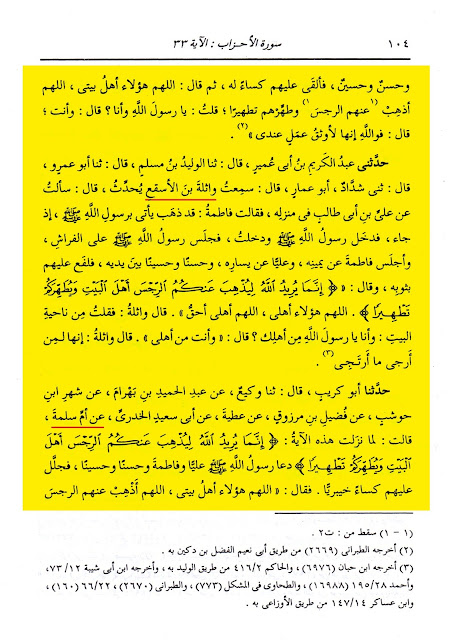 ١٠٤ سورة الأحزاب : الآية ٣٣
وحسنٌ وحسينٌ ، فألقَى عليهم كساءً له ، ثم قال : اللهم هؤلاء أهلُ بيتى ، اللهم
أذهِبْ (١عنهم الرجسَ١) وطهِّرْهم تطهيرًا ؛ قلتُ : يا رسولَ اللَّهِ وأنا ؟ قال : وأنت ؛
قال : فواللَّهِ إنها لأوثقُ عملٍ عندى »(٢) .
حدَّثنى عبدُ الكريمِ بنُ أبى عُميرٍ ، قال : ثنا الوليدُ بنُ مسلمٍ ، قال : ثنا أبو عمرٍو ،
قال : ثنى شدَّادٌ ، أبو عمارٍ ، قال : سمِعتُ واثلةَ بنَ الأسقعِ يُحدِّثُ ، قال : سألتُ
عن علىِّ بنِ أبى طالبٍ فى منزلِه ، فقالت فاطمةُ : قد ذهَب يأتى برسولِ اللَّهِ ﷺ ، إذ
جاء ، فدخَل رسولُ اللَّهِ ﷺ ودخلتُ ، فجلَس رسولُ اللَّهِ ﷺ على الفراشِ ،
وأجلَس فاطمةَ عن يمينِه ، وعليًّا عن يسارِه ، وحسنًا وحسينًا بينَ يديه ، فلفَع عليهم
بثوبِه ، وقال : « ﴿ إِنَّمَا يُرِيدُ اللَّهُ لِيُذْهِبَ عَنكُمُ الرِّجْسَ أَهْلَ الْبَيْتِ وَيُطَهِّرَكُمْ
تَطْهِيرًا ﴾ . اللهم هؤلاء أهلى ، اللهم أهلى أحقُّ » . قال واثلةُ : فقلتُ من ناحيةِ
البيتِ : وأنا يا رسولَ اللَّهِ مِن أهلِك ؟ قال : « وأنت من أهلى » . قال واثلةُ : إنها لمِن
أرجى ما أَرتَجِى(٣) .
حدَّثنا أبو كريبٍ ، قال : ثنا وكيعٌ ، عن عبدِ الحميدِ بنِ بَهْرامَ ، عن شهرِ ابنِ
حوشبٍ ، عن فُضيلِ بنِ مرزوقٍ ، عن عطيةَ ، عن أبى سعيدٍ الخدرىِّ ، عن أمِّ سلمةَ ،
قالت : لما نزَلت هذه الآيةُ : ﴿ إِنَّمَا يُرِيدُ اللَّهُ لِيُذْهِبَ عَنكُمُ الرِّجْسَ أَهْلَ
الْبَيْتِ وَيُطَهِّرَكُمْ تَطْهِيرًا ﴾ دعا رسولُ اللَّهِ ﷺ عليًّا وفاطمةَ وحسنًا وحسينًا ، فجلَّل
عليهم كساءً خيبريًّا . فقال : « اللهم هؤلاء أهلُ بيتى ، اللهم أَذْهِبْ عنهم الرجسَ
(١ - ١) سقط من : ت٢ .
(٢) أخرجه الطبرانى (٢٦٦٩) من طريق أبى نعيم الفضل بن دكين به .
(٣) أخرجه ابن حبان (٦٩٧٦) ، والحاكم ٤١٦/٢ من طريق الوليد به ، وأخرجه ابن أبى شيبة ٧٣/١٢ ،
وأحمد ١٩٥/٢٨ (١٦٩٨٨) ، والطحاوى فى المشكل (٧٧٣) ، والطبرانى (٢٦٧٠) ، ٦٦/٢٢ (١٦٠) ،
وابن عساكر ١٤٧/١٤ من طريق الأوزاعى به .